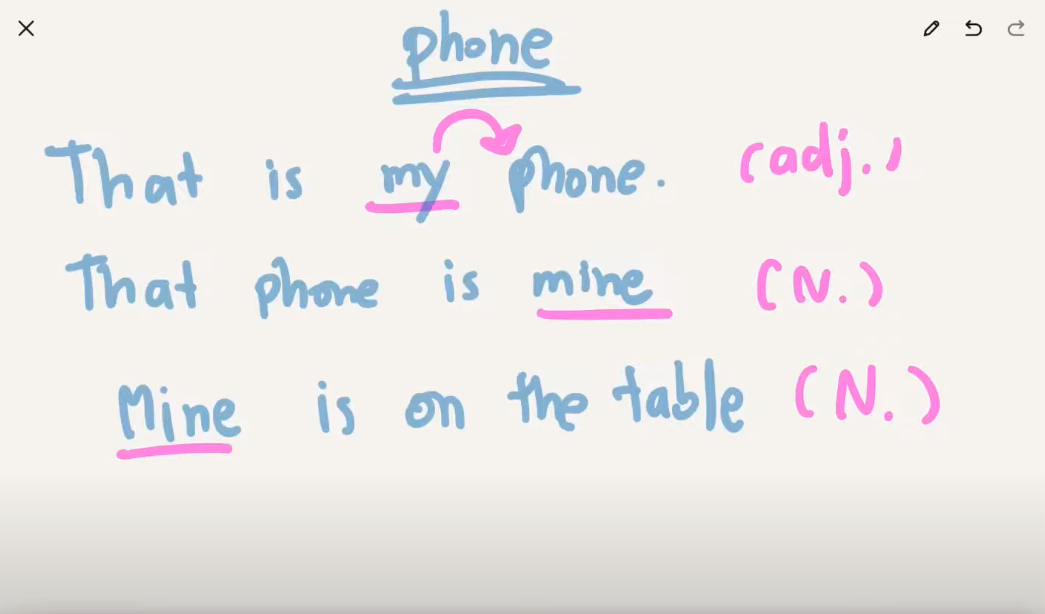 phone
That is my phone. (adj.)
That phone is mine (N.)
Mine is on the table (N.)